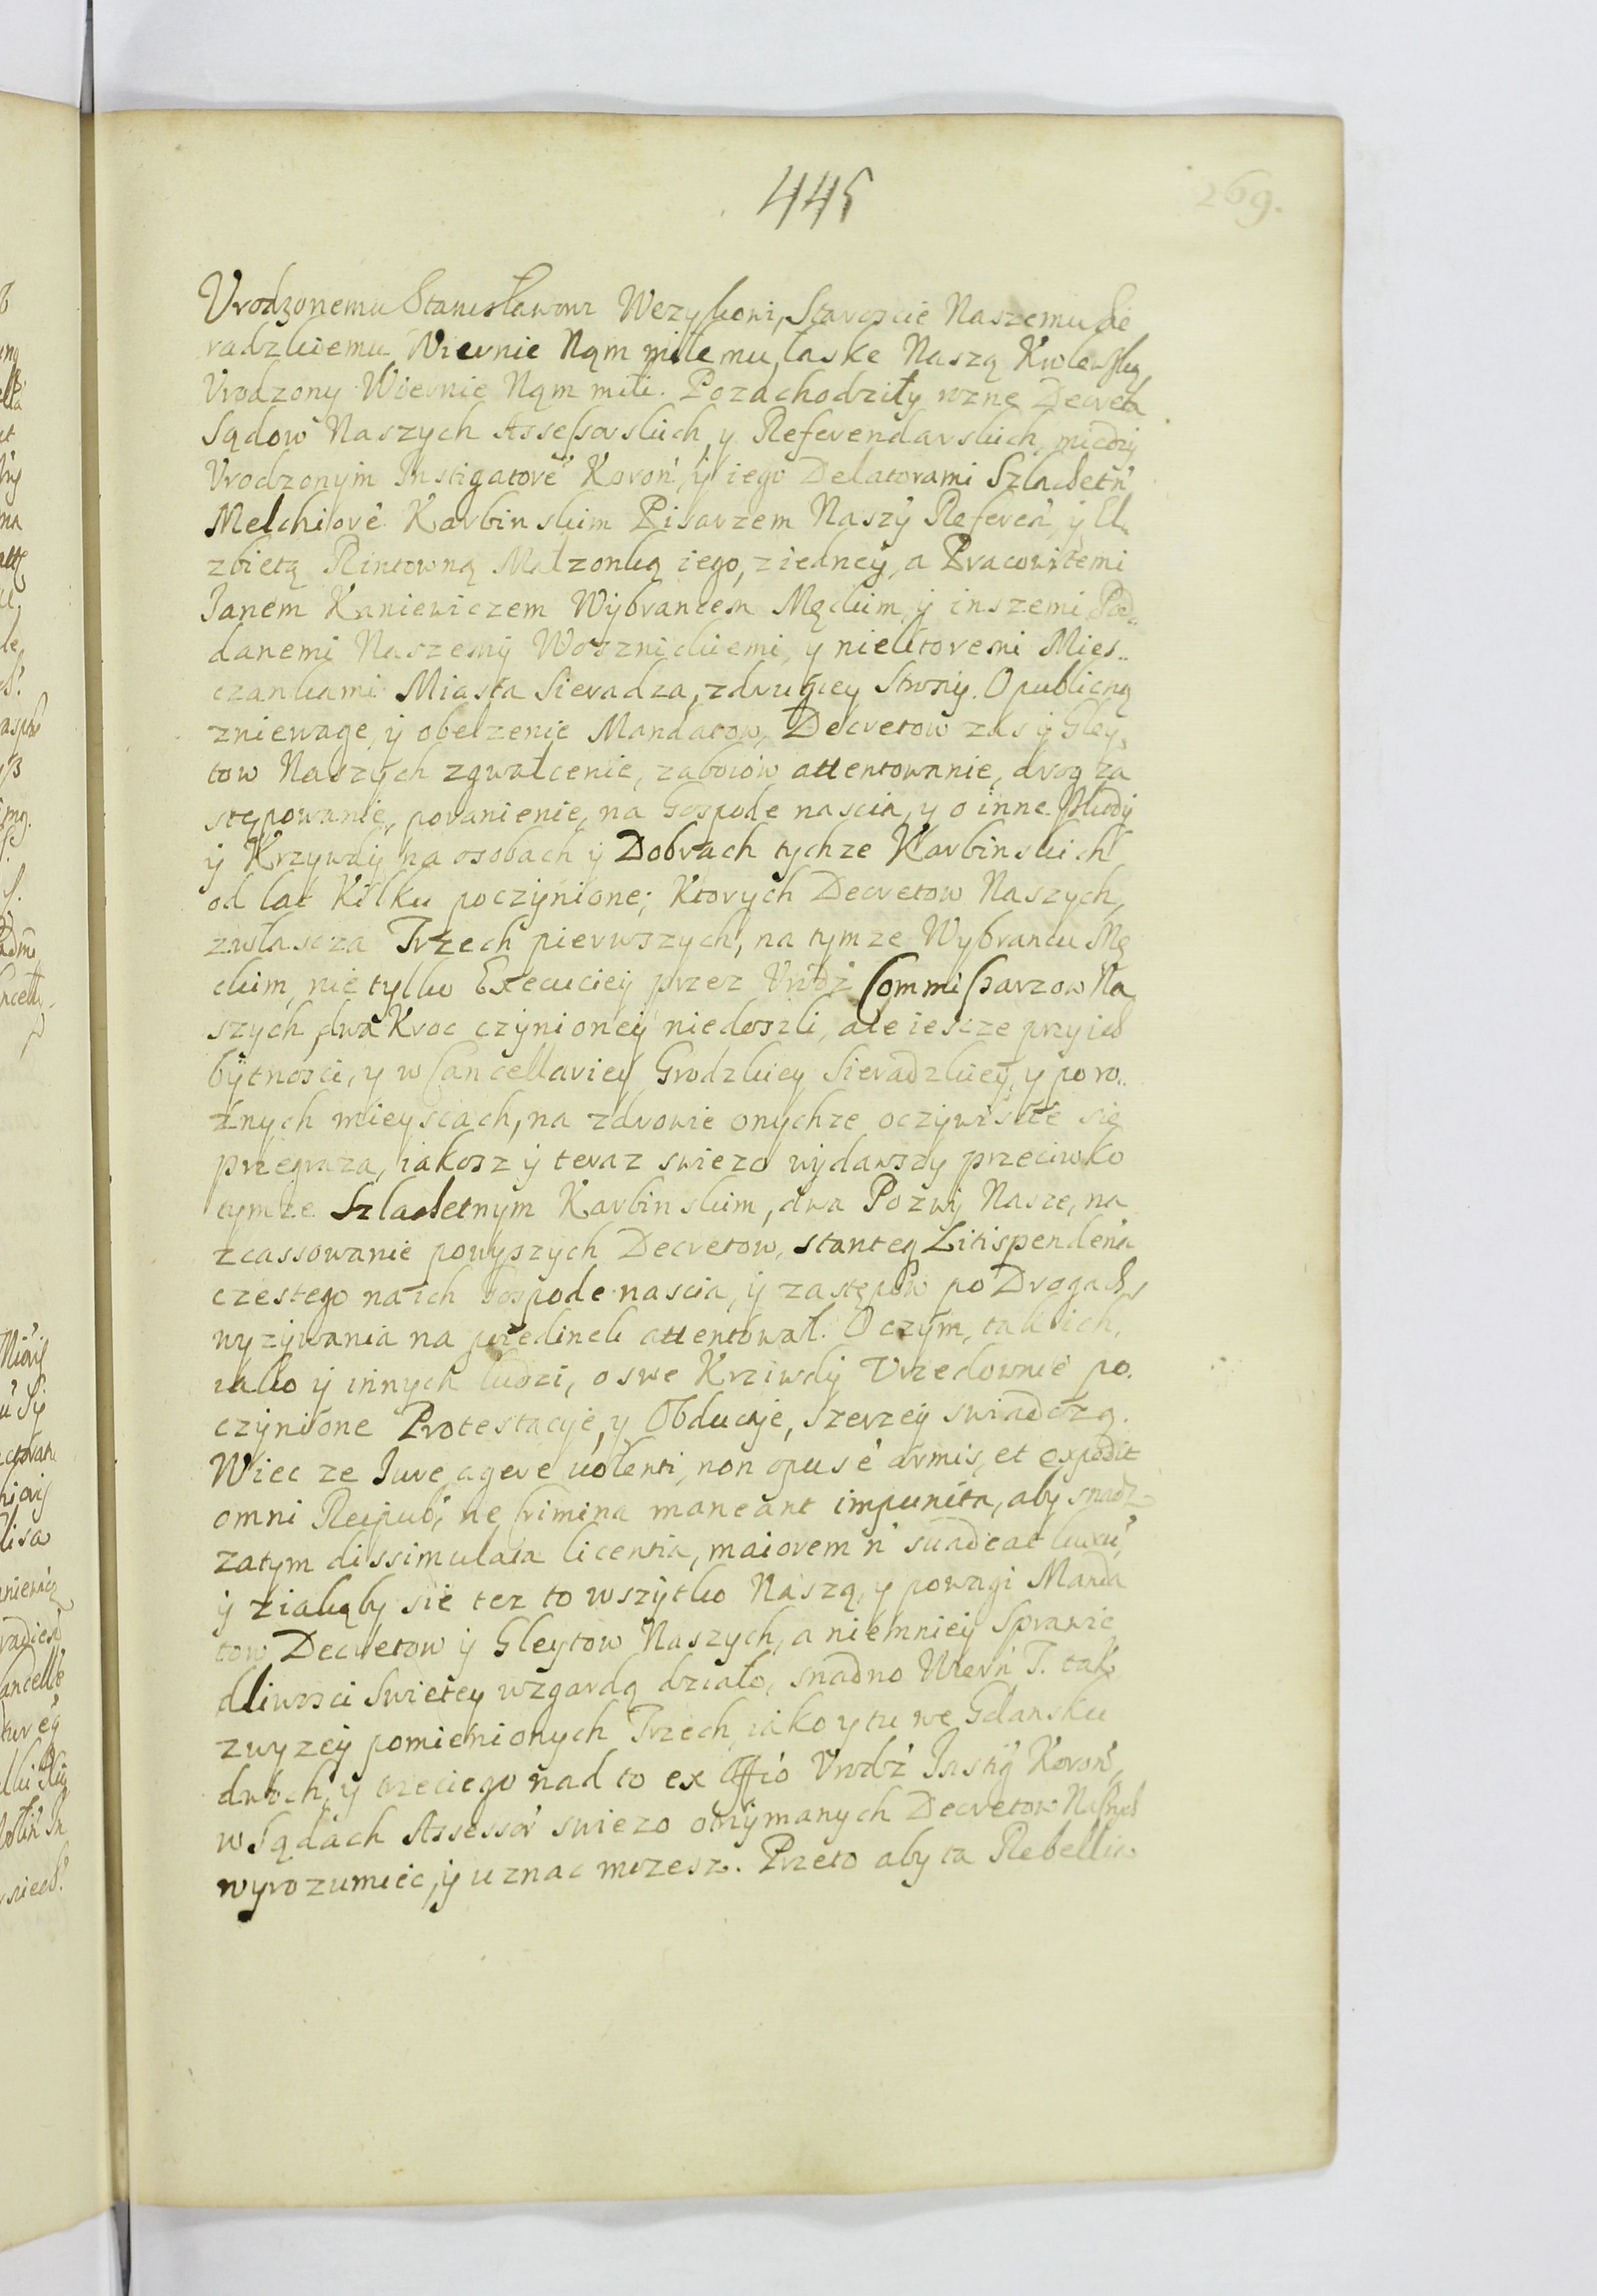 445
269.
Vrodzonemu Stanisławowi Wezykowi, Staroscie Naszemu Sie
radzkiemu Wiernie Nąm miłemu łaske Naszą Krolewską
Vrodzony Wiernie Nąm miłi. Pozachodziły rozne Decreta
Sądow Naszych Assessorskich, y Referendarskich, miedzy
Vrodzonym Instigatore Koron y iego Delatorami Szlachetn
Melchiore Karbinskim Pisarzem Naszy Referen y El.
zbietą Rintowną Małzonką iego, ziedney, a Pracowitemi
Janem Kaniewiczem Wybrancem Męckim y inszemi Pod.
danemi Naszemy Woznickiemi, y niektoremi Mies..
czankami Miasta Sieradza, zdrugiey Strony. O publiczną
zniewage, y obelzenie Mandatow, Decretow zas y Gley.
tow Naszych zgwałcenie, zaboiow attentowanie, drog za
stępowanie, poranienie, na Gospode nascia, y o inne szkody
y Krzywdy na osobach y Dobrach tychze Karbinskich
od lat kilku poczynione; Ktorych Decretow Naszych,
zwłascza Trzech pierwszych, na tymze Wybrancu Mę
ckim, nie tylko Execuciey przez Vrodz Commissarzow Na
szych dwa Kroc czynioney niedoszli, ale iescze przy ich
bytnosci, y w Cancellariey Grodzkiey Sieradzkiey, y poro..
znych mieyscach, na zdrowie onychze oczywiscie się
przegraza, iakosz y teraz swiezo wydawszy przeciwko
tymze Szlachetnym Karbinskim, dwa Pozwy Nasze, na
zcassowanie powyszych Decretow, stanteq Litispendena
czestego na ich Gospode nascia, y zastępow po Drogach,
wyzywania na poiedinek attentował. O czym, tak ich,
iako y innych ludzi, o swe Krziwdy Vrzedownie po.
czynione Protestacyie, y Obducyie, szerzey swiadczą.
Wiec ze Jure agere uolenti, non opus e armis, et expedit
omni Reipub, ne Crimina maneant impunita, aby snadz
zatym dissimulata licentia, maiorem n suadeat luxu,
y ziakąby sie tez to wszytko Naszą, y powagi Manda
tow Decretow y Gleytow Naszych, a niemniey Sprawie
dliwosci Swietey wzgardą działo, snadno Wiern T. tak
zwyzey pomienionych Trzech, iako y tu we Gdansku
dwoch, y trzeciego nad to ex Offio Vrodz Instig Koron
w Sądach Assessor swiezo otrzymanych Decretow Naszych
wyrozumiec, y uznac mozesz. Przeto aby ta Rebellia